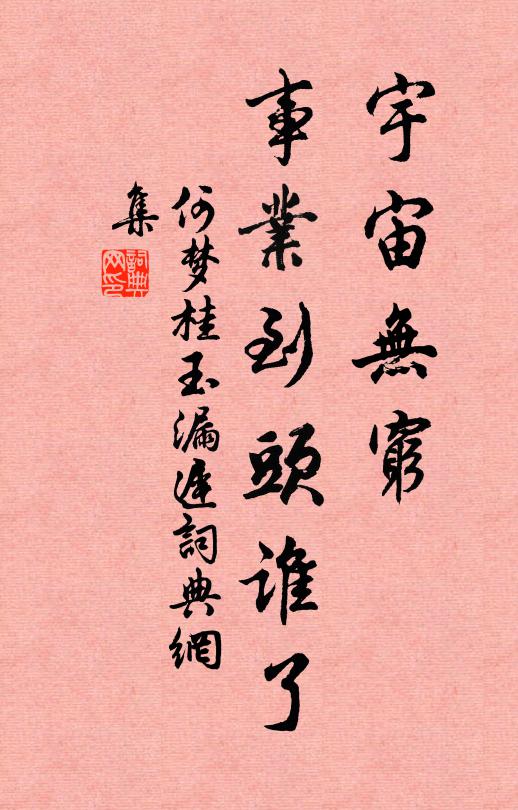 宇宙無窮
事業到頭誰了
何梦桂玉漏遲詞典網
集
詞典网印